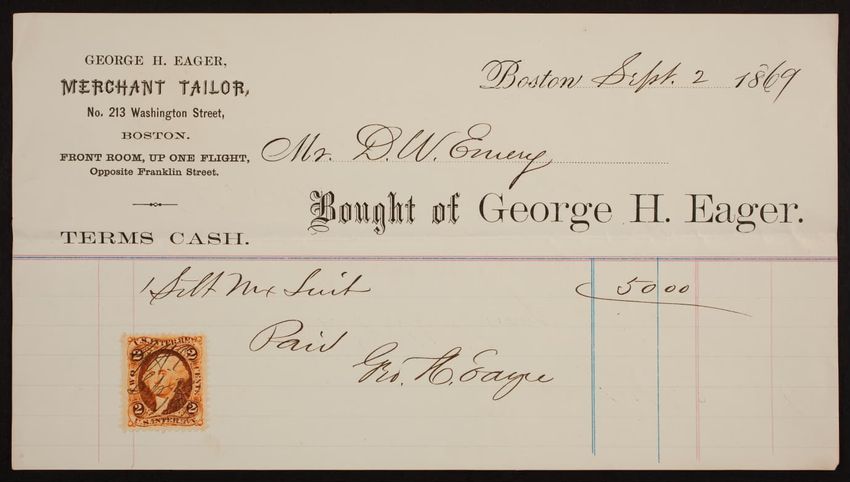 GEORGE H. EAGER,
MERCHANT TAILOR,
No. 213 Washington Street,
BOSTON.
FRONT ROOM, UP ONE FLIGHT,
Opposite Franklin Street.
TERMS CASH.
Boston Sept. 2 1869
Mr. D. W. Emery
Bought of George H. Eager.
1 Suit 50 00
Paid
Geo. H. Eager
U.S. INTER. REV.
2 2
TWO CENTS
2 2